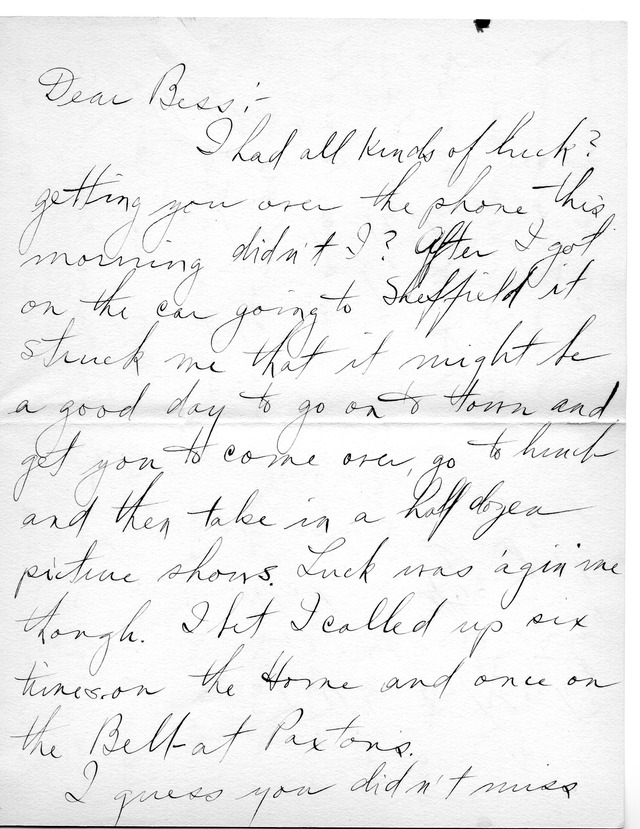 Dear Bess:-
I had all kinds of luck?
getting you over the phone this
morning didn't I? After I got
on the car going to Sheffield it
struck me that it might be
a good day to go on to town and
get you to come over, go to lunch
and then take in a half dozen
picture shows. Luck was 'agin' me
though. I bet I called up six
times on the Home and once on
the Bell-at Paxton's.
I guess you didn't miss